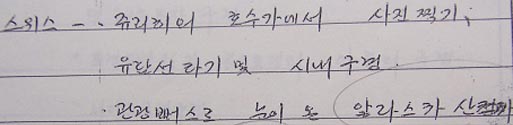 스위스 - · 쮸리히의 호수가에서 사진 찍기,
· 유람선 타기 및 시내 구경.
· 관광뻐스로 눈이 온 알라스카 산맥까